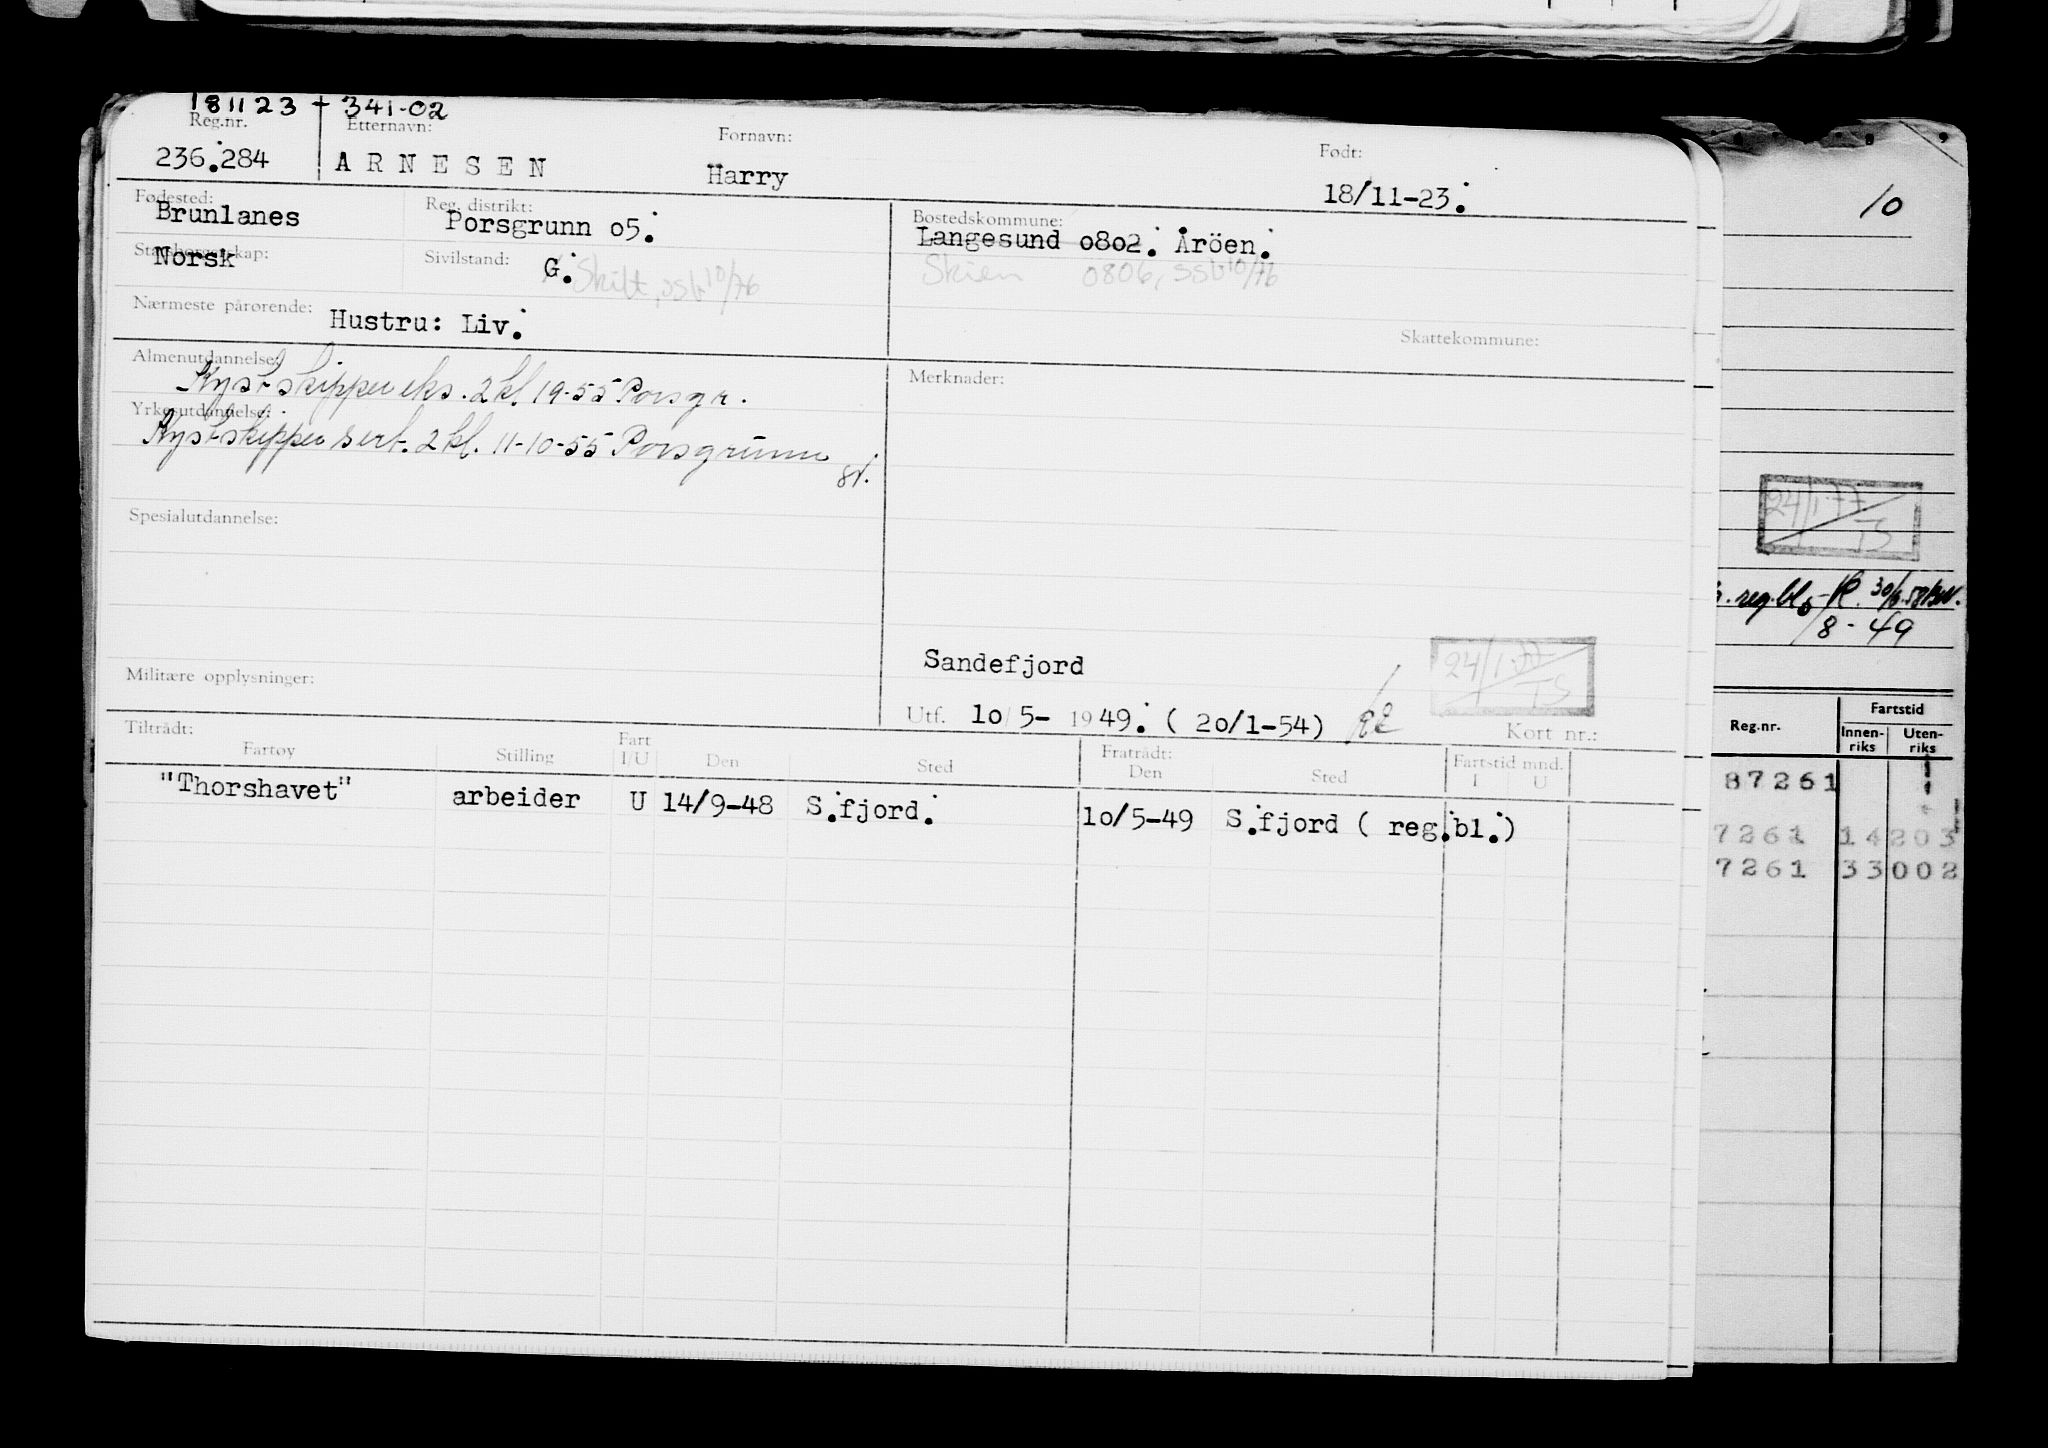 181123 + 341-02
Reg.nr. Etternavn: Fornavn: Født:
236.284 ARNESEN Harry 18/11-23.
Fødested: Reg. distrikt: Bostedskommune:
Brunlanes Porsgrunn o5. Langesund o8o2. Åröen.
Statsborgerskap: Sivilstand:
Norsk G. Skilt, ssb 10/76 Skien 0806, ssb 10/76
Nærmeste pårørende: Hustru: Liv.
Skattekommune:
Almenutdannelse: Merknader:
Kystskippereks. 2 kl. 19-55 Porsgr.
Yrkesutdannelse:
Kystskippersert. 2 kl. 11-10-55 Porsgrunn
Spesialutdannelse:
Sandefjord
24/1-77 TS
Militære opplysninger:
Utf. 1o/5- 1949. ( 2o/1-54)
Kort nr.:
Tiltrådt: Fratrådt:
Fartøy Stilling Fart I/U Den Sted Den Sted Fartstid mnd. I U
"Thorshavet" arbeider U 14/9-48 S.fjord. 1o/5-49 S.fjord ( reg.bl.)
10
24/1-77 TS
reg.bl.
/8-49
Reg.nr. Fartstid
Innen-riks Uten-riks
87261
7261 14203
7261 33002